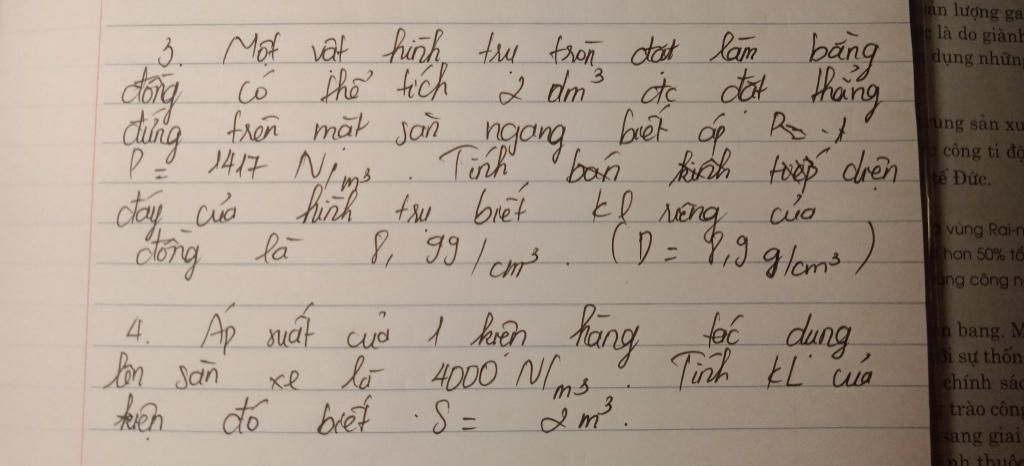 3. Một vật hình trụ tròn đặt làm bằng
đồng có thể tích 2 dm³ đc đặt thẳng
đứng trên mặt sàn ngang biết áp
P = 1417 N/m³. Tính bán kính tiếp diện
đáy của hình trụ biết kl riêng của
đồng là 8,9g/cm³. (D = 8,9 g/cm³)
4. Áp suất của 1 kiện hàng tác dụng
lên sàn xe là 4000 N/m³. Tính kL của
kiện đó biết S = 2m³.
ản lượng ga
là do giành
dụng nhữn
ùng sản xu
công ti độ
tế Đức.
vùng Rai-n
hơn 50% tổ
ùng công n
n bang. M
ối sự thốn
chính sác
trào côn
sang giai